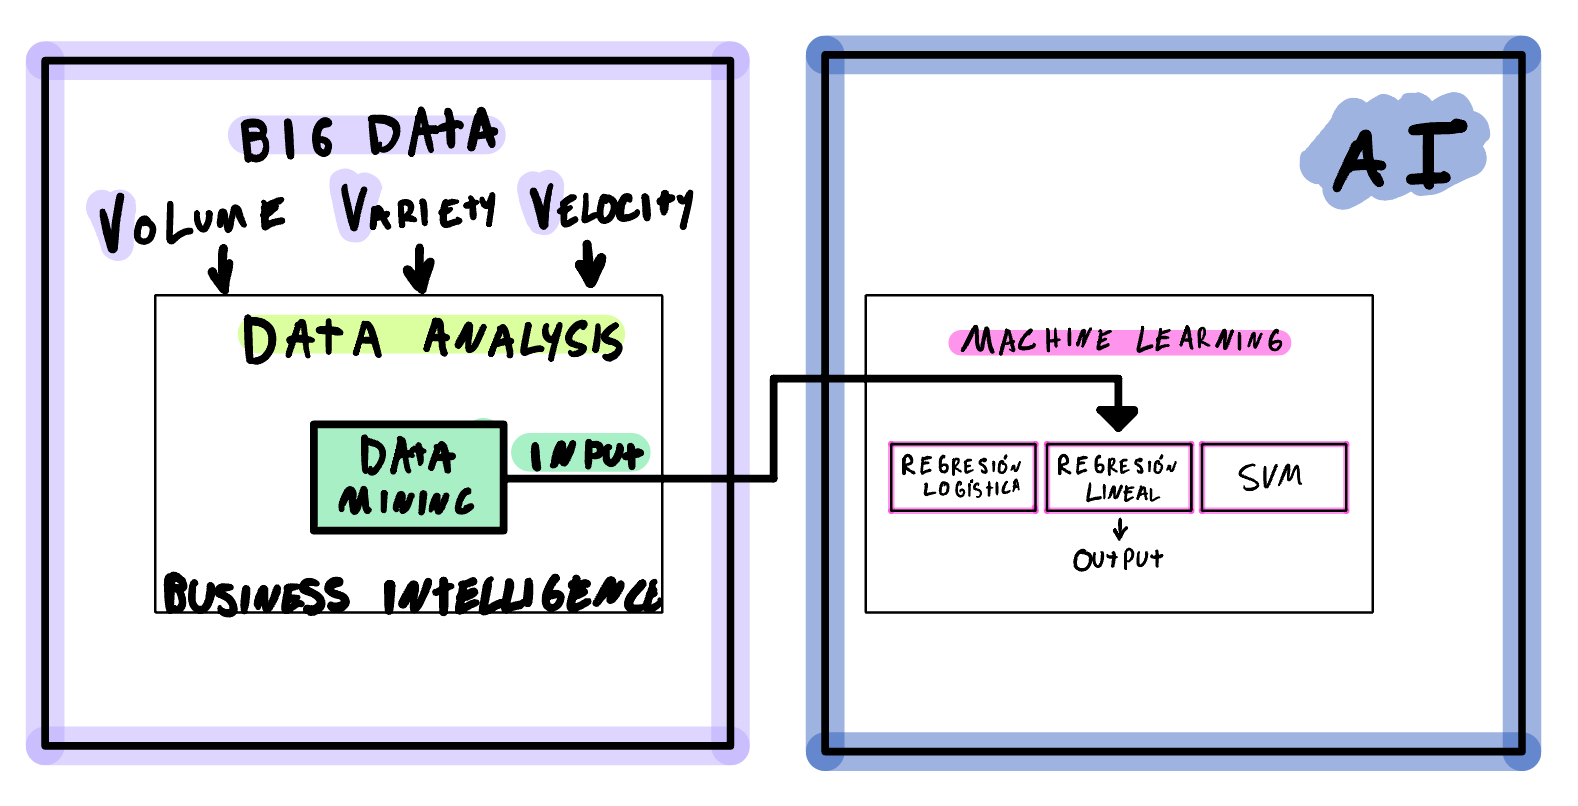 BIG DATA
VOLUME VARIETY VELOCITY
DATA ANALYSIS
DATA
MINING
INPUT
BUSINESS INTELLIGENCE
AI
MACHINE LEARNING
REGRESIÓN
LOGÍSTICA
REGRESIÓN
LINEAL
SVM
OUTPUT